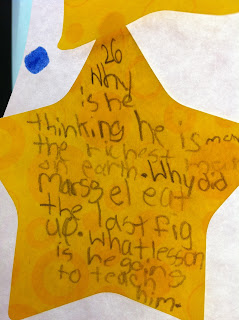 26
Why
is he
thinking he is
the richest man
on earth. Why did
Marssel eat
the last fig
up. What lesson
is he going
to teach
him.